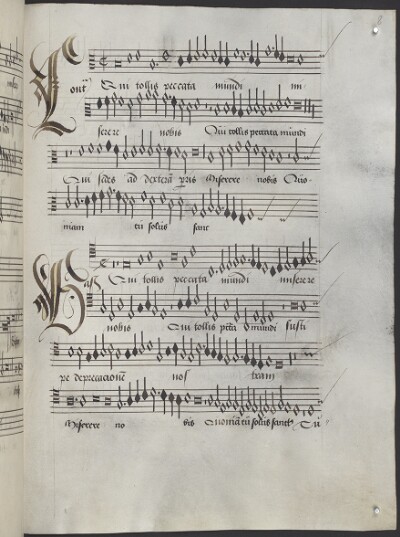 Cont Qui tollis peccata mundi mi
serere nobis Qui tollis peccata mundi
Qui sedes ad dexteram pris Miserere nobis Quo
niam tu solus sanct
Bass Qui tollis peccata mundi miserere
nobis Qui tollis pcta mundi susci
pe deprecacionem nos tram
Miserere no bis Quoniam tu solus sanctus Tu